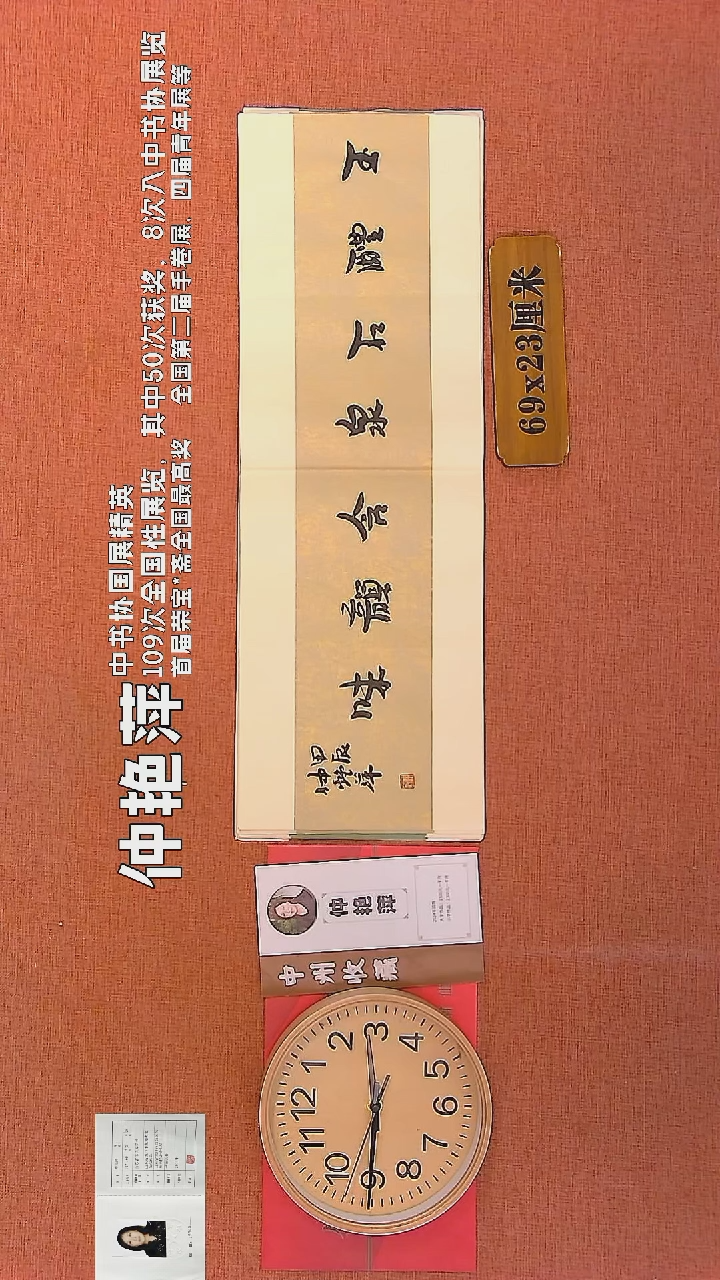 仲艳萍
中书协国展精英
109次全国性展览，其中50次获奖，8次入中书协展览
首届荣宝*斋全国最高奖 全国第二届手卷展、四届青年展等
玉醴石泉含韻味
甲辰
仲艷萍
69x23厘米
仲艳萍
中州收藏
12
1
2
3
4
5
6
7
8
9
10
11